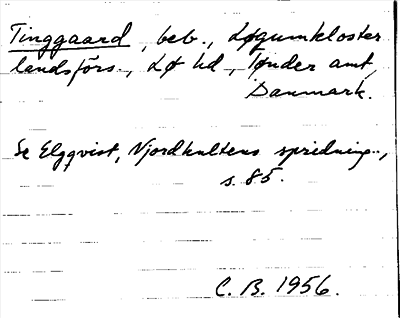 Tinggaard, beb., Løgumkloster
landsförs., Lø hd, Tønder amt,
Danmark.
Se Elgqvist, Njordkultens spridning..,
s. 85.
C. B. 1956.